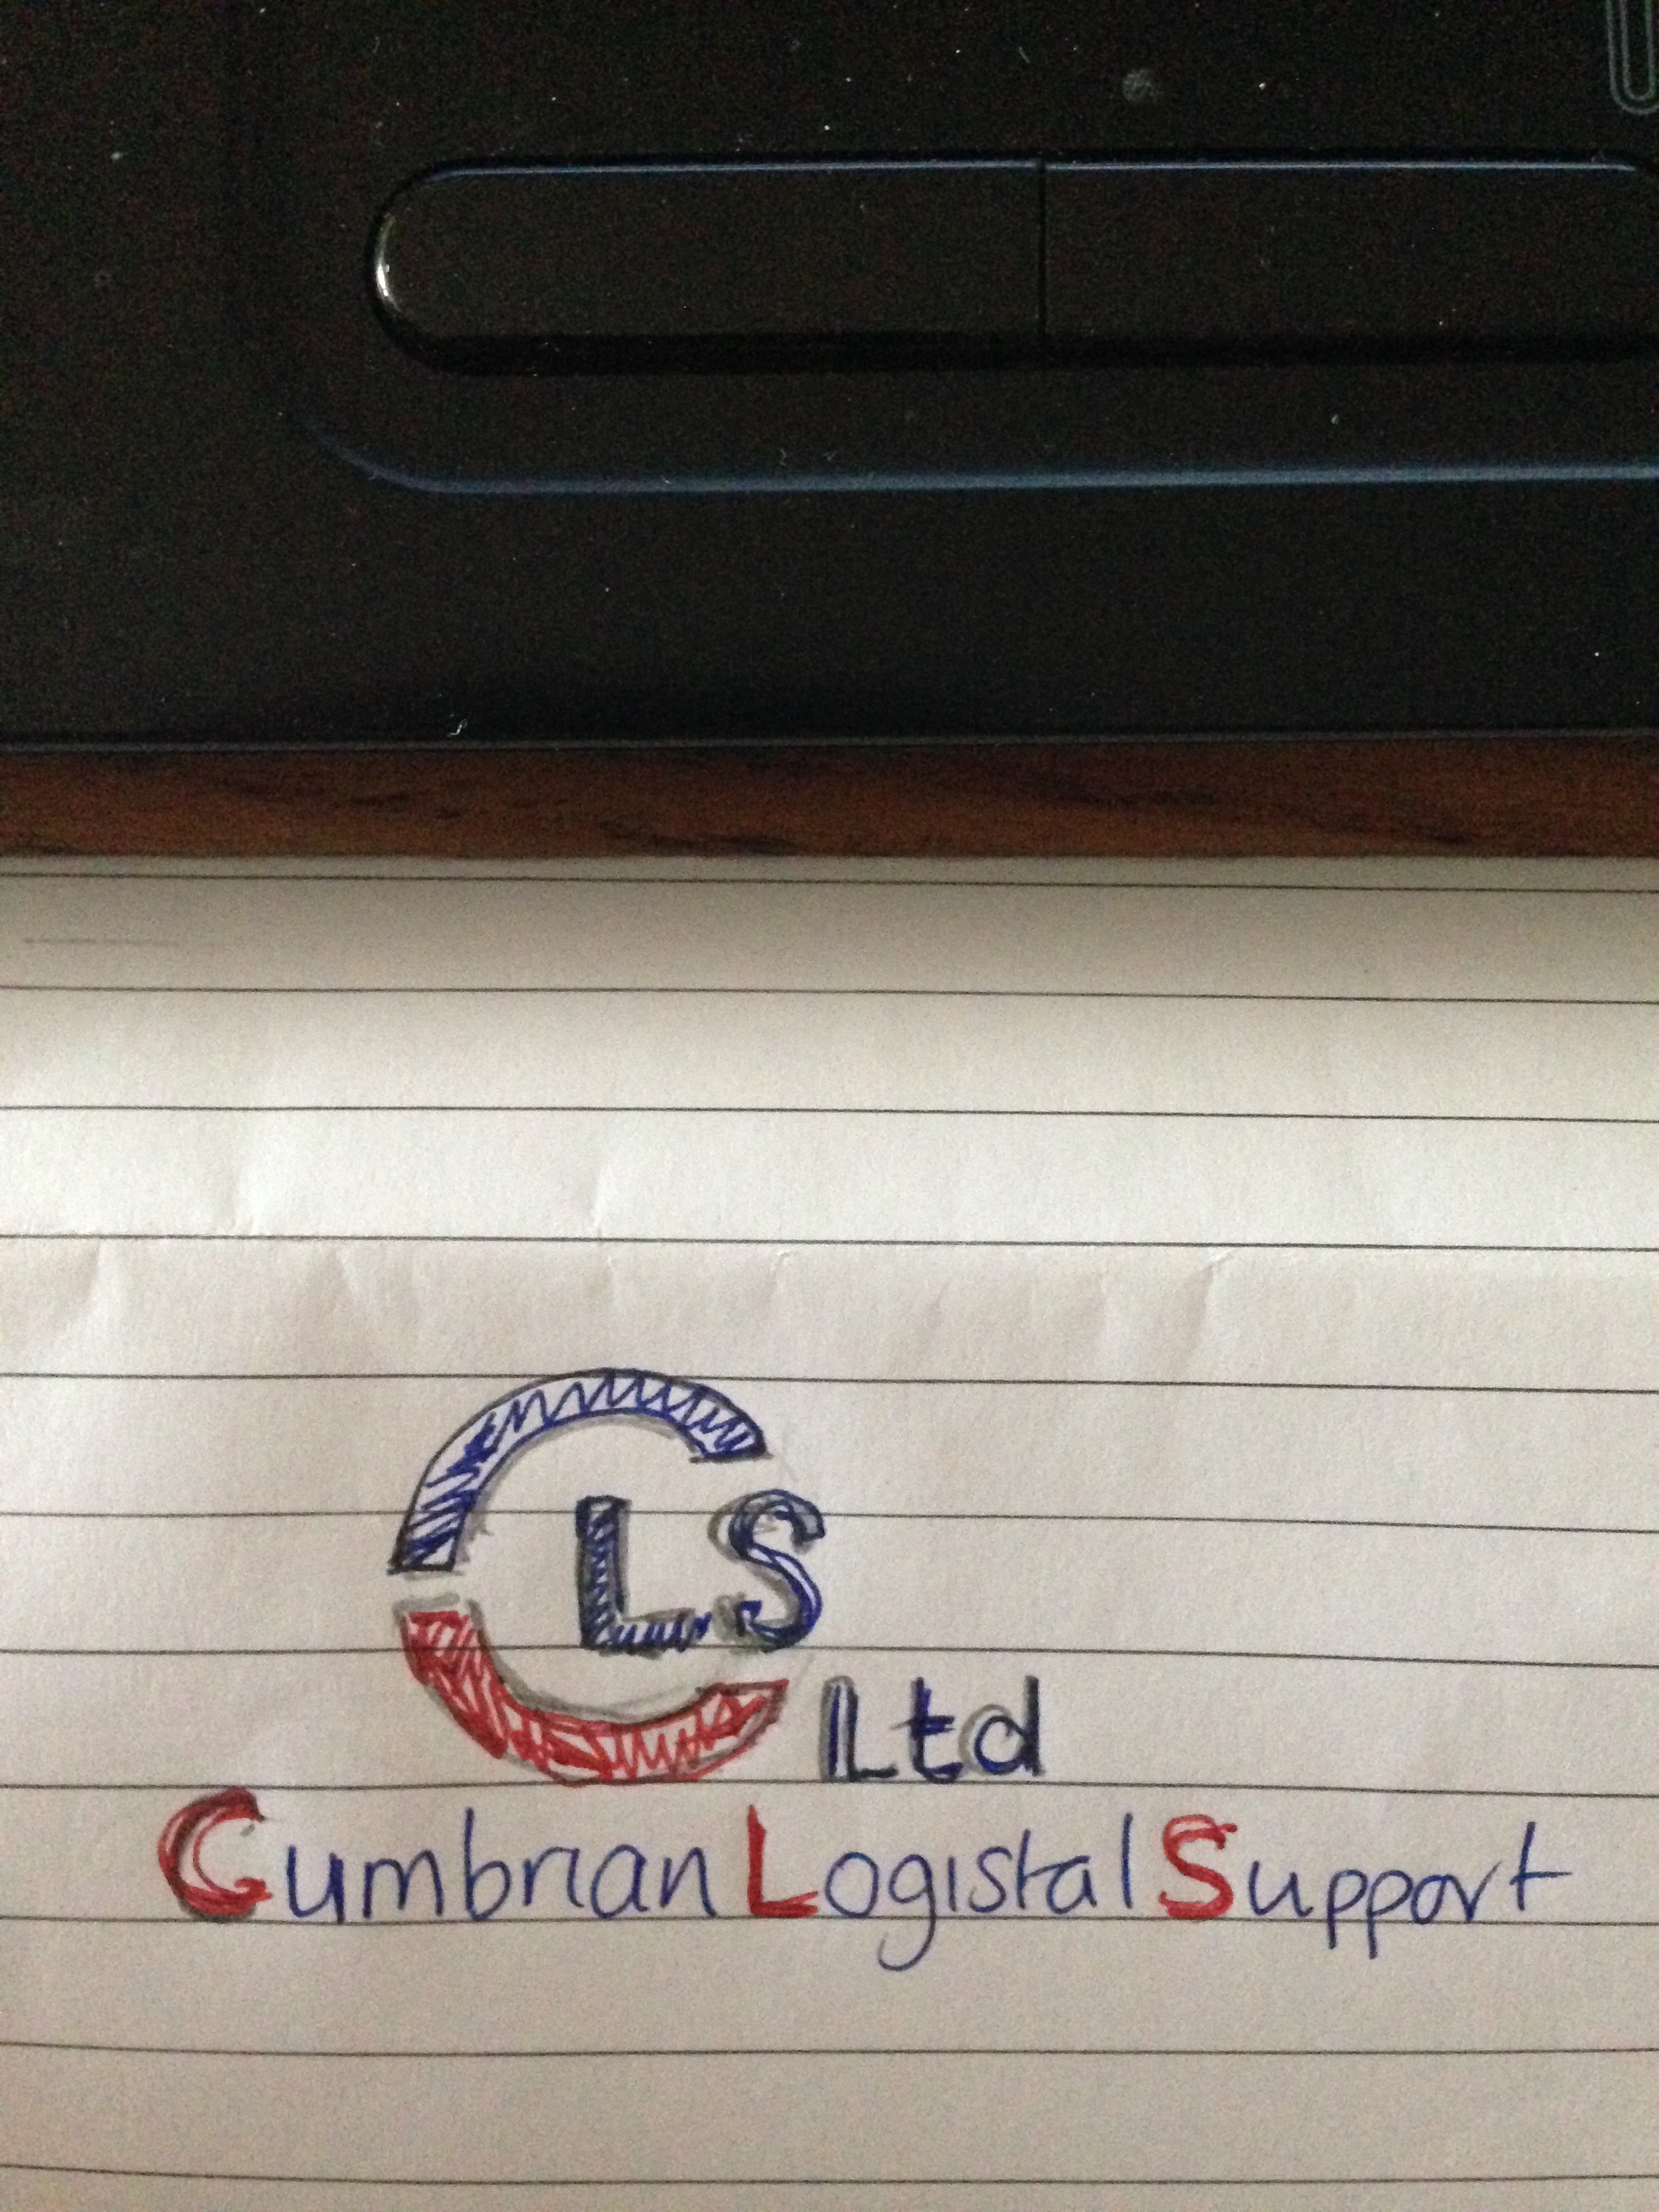 CLS
Ltd
Cumbrian Logistal Support